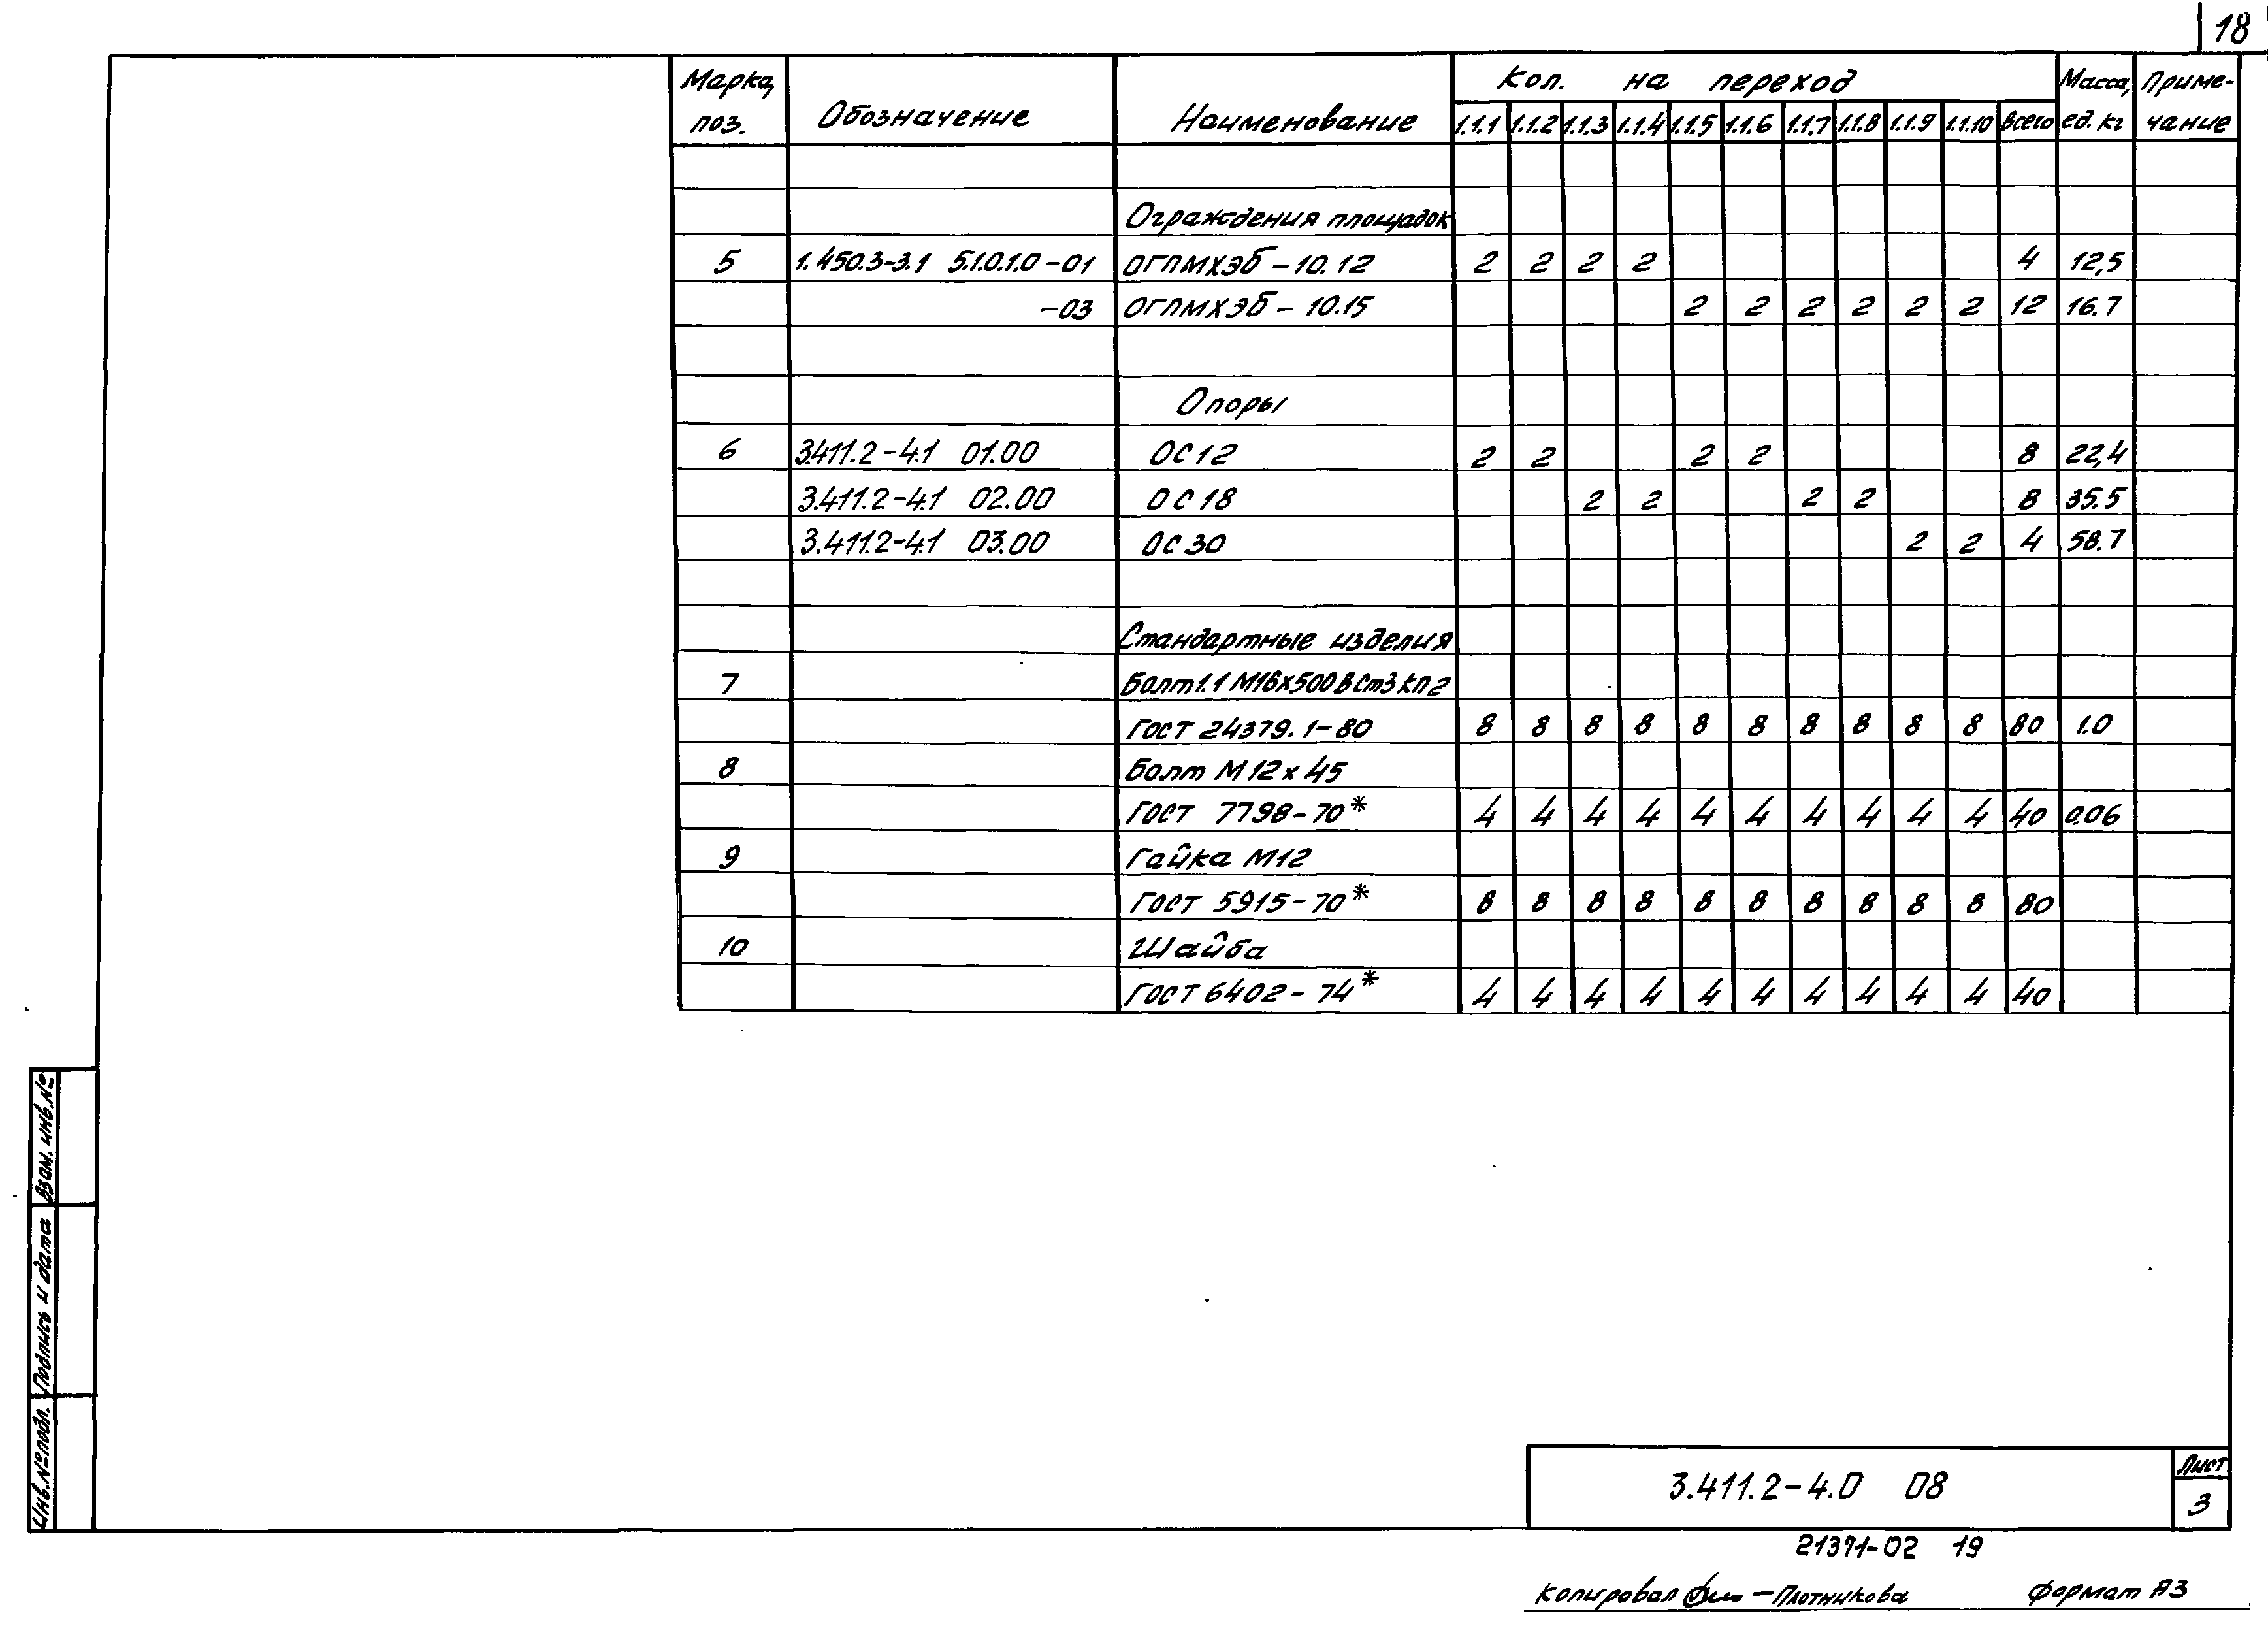 18
Марка, поз. Обозначение Наименование Кол. на переход Масса, ед. кг Приме-чание
1.1.1 1.1.2 1.1.3 1.1.4 1.1.5 1.1.6 1.1.7 1.1.8 1.1.9 1.1.10 всего
Ограждения площадок
5 1.450.3-3.1 5.1.0.1.0-01 ОГПМХЭб-10.12 2 2 2 2 4 12,5
-03 ОГПМХЭб-10.15 2 2 2 2 2 2 12 16.7
Опоры
6 3.411.2-4.1 01.00 ОС12 2 2 2 2 8 22,4
3.411.2-4.1 02.00 ОС18 2 2 2 2 8 35.5
3.411.2-4.1 03.00 ОС30 2 2 4 58.7
Стандартные изделия
7 Болт1.1 М16х500 ВСт3 кп2
ГОСТ 24379.1-80 8 8 8 8 8 8 8 8 8 8 80 1.0
8 Болт М12х45
ГОСТ 7798-70* 4 4 4 4 4 4 4 4 4 4 40 0.06
9 Гайка М12
ГОСТ 5915-70* 8 8 8 8 8 8 8 8 8 8 80
10 Шайба
ГОСТ 6402-74* 4 4 4 4 4 4 4 4 4 4 40
Взам. инв.№
Подпись и дата
Инв.№ подл.
3.411.2-4.0 08
Лист
3
21371-02 19
Копировал – Плотникова Формат А3